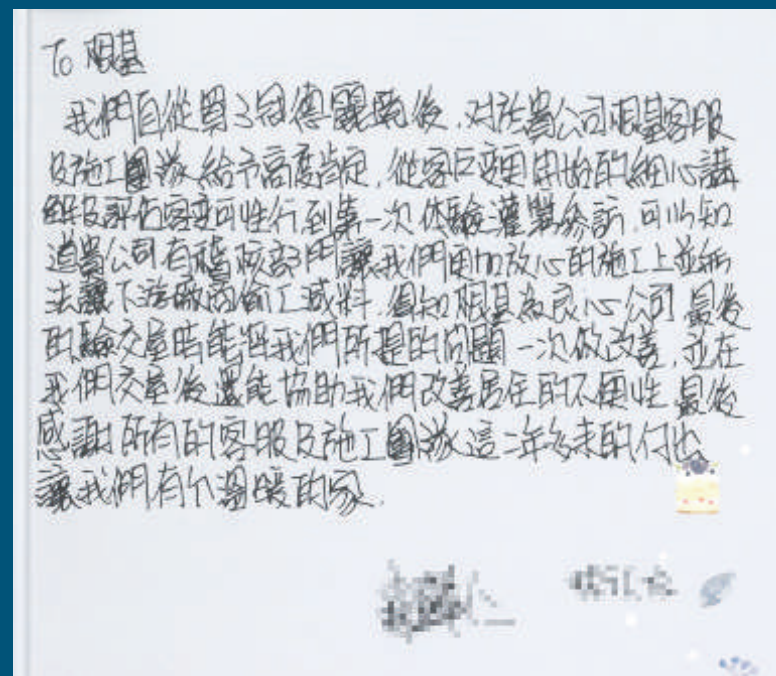 To 根基
我們自從買了冠德麗琚後,对於貴公司根基客服
及施工團隊給予高度肯定,從客戶变更開始的細心講
解及評估客変可性行到第一次体驗灌漿參訪,可以知
道貴公司有稽核部門讓我們更加放心的施工上並無
法讓下游廠商偷工減料,得知根基為良心公司 最後
的驗交屋時能將我們所提的问題一次做改善,並在
我們交屋後還能協助我們改善居住的不便性 最後
感謝所有的客服及施工團隊這二年多來的付出
讓我們有个溫暖的家.